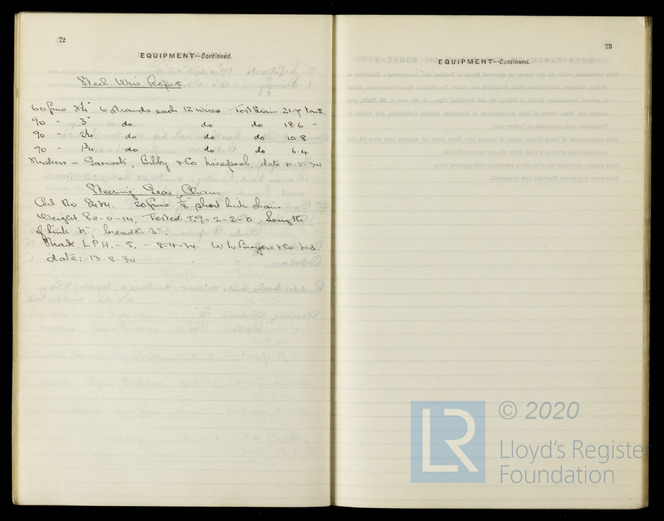 72
EQUIPMENT—Continued.
Steel Wire Ropes
60 fms 3½" 6 strands each 12 wires Test Strain 21.7 tons
90 " 3" do do do 18.6 "
90 " 2¼ do do do 10.8
90 " 1¾ do do do 6.4
Makers – Garnock, Bibby & Co Liverpool date
Steering Gear Chain
Cert No 20 fms short link chain
Weight 80-0-14, Tested T.9-2-2-0, Length
of link 4", breadth 3"
Mark L.P.H. – 5. – 8-4-34 & Co Ltd.
date: 13.8.34
73
EQUIPMENT—Continued.
LR
© 2020
Lloyd's Register
Foundation